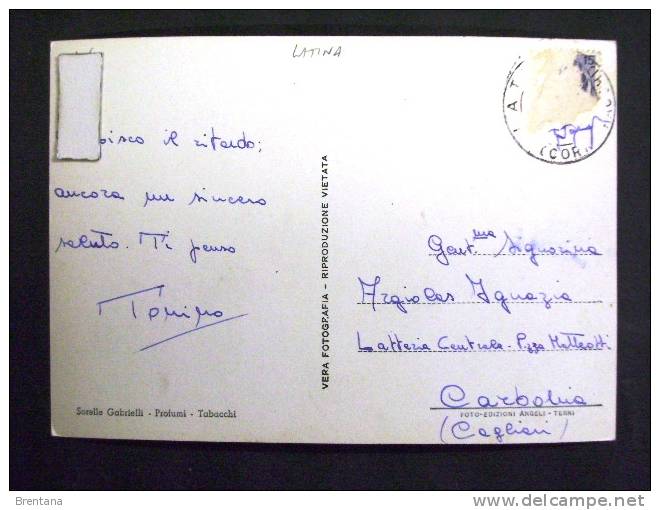 LATINA
15
LAT
(COR
il ritardo;
ancora un sincero
saluto. Ti penso
Tonino
VERA FOTOGRAFIA - RIPRODUZIONE VIETATA
Gent.ma Signorina
Argiolas Ignazia
Latteria Centrale - P.zza Matteotti
Carbonia
(Cagliari)
Sorelle Gabrielli - Profumi - Tabacchi
FOTO-EDIZIONI ANGELI - TERNI
Brentana
delcampe.net